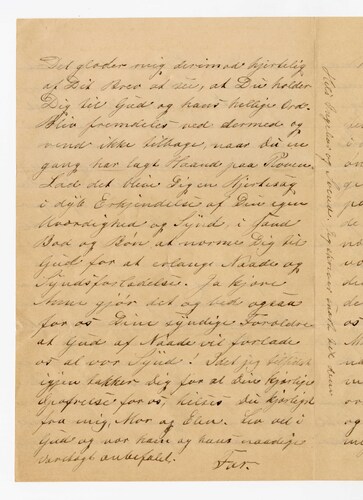 Det glæder mig derimod hjertelig
af Dit Brev at see, at Du holder
Dig til Gud og hans hellige Ord.
Bliv fremdeles ved dermed og
vend ikke tilbage, naar Du en
gang har lagt Haand paa Ploven.
Lad det blive Dig en Hjertesag
i dyb Erkjendelse af Din egen
Uværdighed og Synd, i sand
Bod og Bøn at nærme Dig til
Gud for at erlange Naade og
Syndsforladelse. Ja kjære
gjør det og bed ogsaa
for os Dine syndige Forældre
at Gud af Naade vil forlade
os al vor Synd! Idet jeg
igjen takker Dig for al Din kjærlige
Opofrelse for os, hilses Du kjærligst
fra mig, Mor og Elen. Lev vel i
Gud og vær ham og hans naadige
Varetægt anbefalet.
Far.
Hils og Svend. Jeg skriver snart til dem